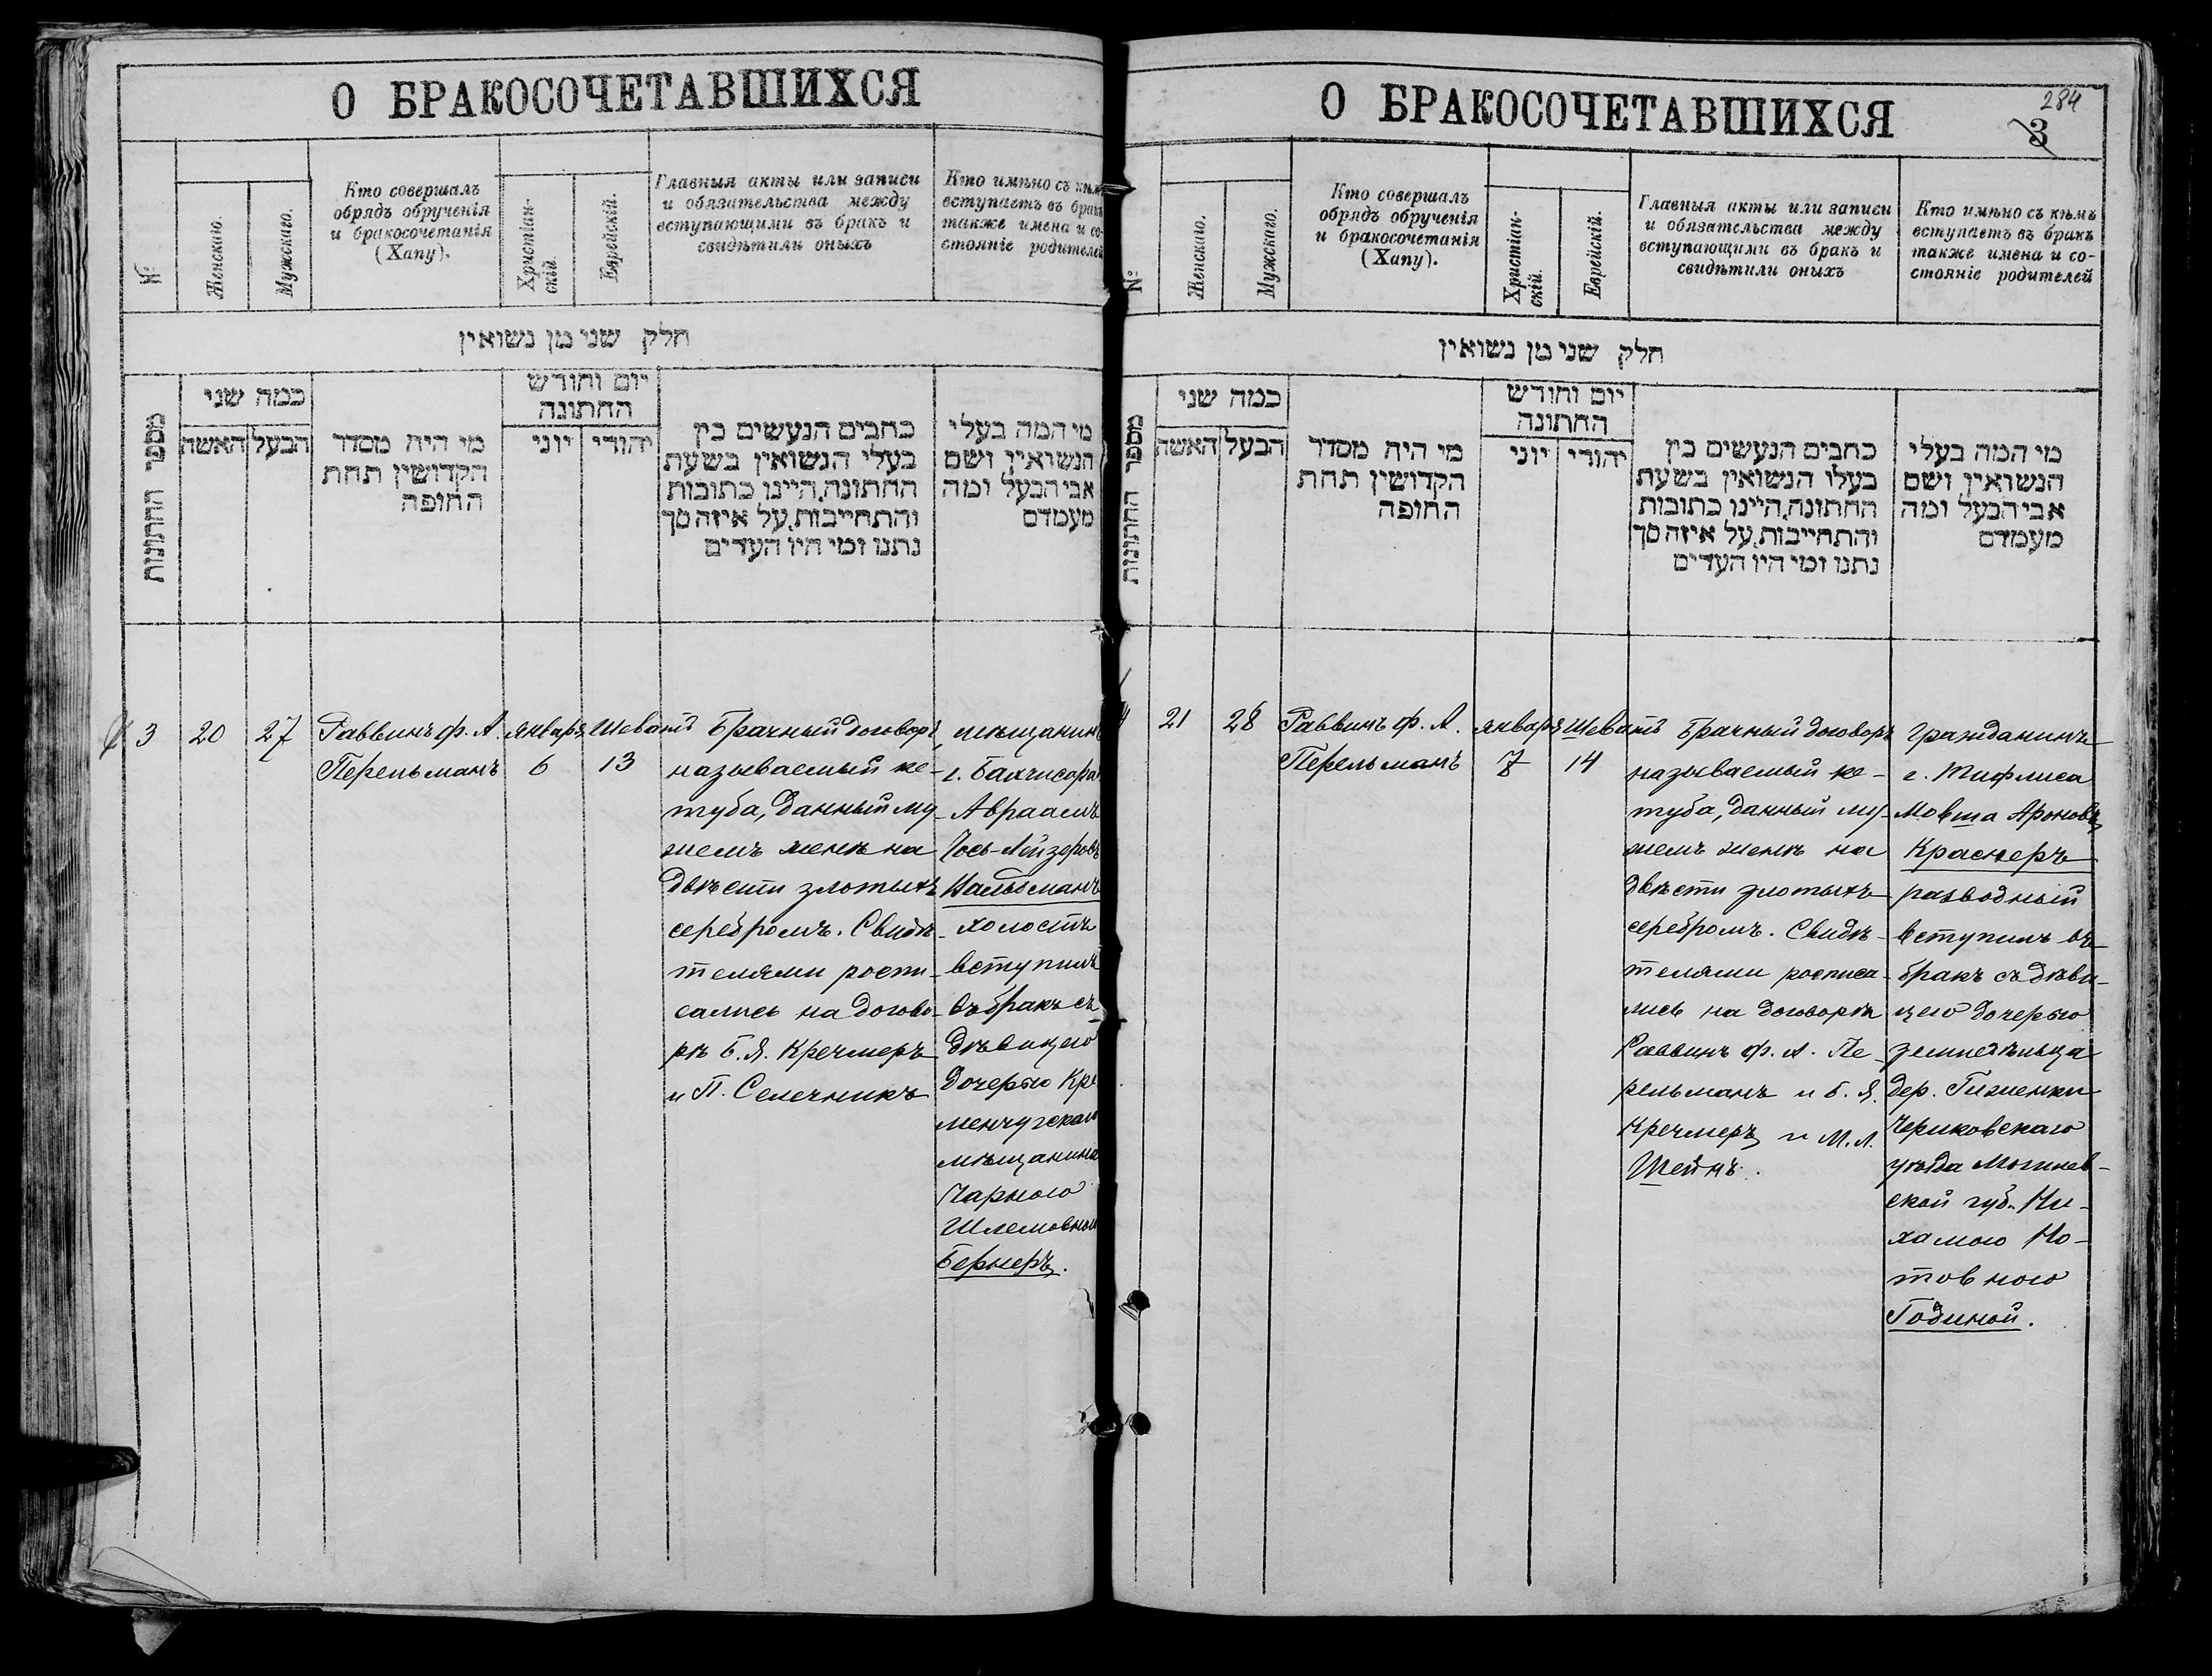 О БРАКОСОЧЕТАВШИХСЯ
№
Женскаго.
Мужскаго.
Кто совершалъ
обрядъ обрученія
и бракосочетанія
(Хапу).
Христіан-
скій.
Еврейскій.
Главныя акты или записи
и обязательства между
вступающими въ бракъ и
свидѣтили оныхъ
Кто имѣно съ кѣмъ
вступаетъ въ бракъ
также имена и со-
стояніе родителей
חלק שני מן נשואין
מספר החתונות
כמה שני
האשה
הבעל
מי היה מסדר
הקדושין תחת
החופה
יום וחודש
החתונה
יוני
יהודי
כתבים הנעשים בין
בעלי הנשואין בשעת
החתונה, היינו כתובות
והתחייבות, על איזה סך
נתנו ומי היו העדים
מי המה בעלי
הנשואין ושם
אבי הבעל ומה
מעמדם
3
20
27
Раввинъ ф. А.
Перельманъ
Января
6
Шеватъ
13
Брачный договоръ,
называемый ке-
туба, данный му-
жемъ женѣ на
двѣсти злотыхъ
серебромъ. Свидѣ-
телями роспи-
сались на догово-
рѣ Б. Я. Кречмеръ
и П. Селечникъ
мѣщанинъ
г. Бахчисара
Авраамъ
Іось-Лейзеровъ
Кальсманъ
холостъ
вступилъ
въ бракъ съ
дѣвицею
дочерью Кре
менчугскаго
мѣщанина
Чарною
Шлемовною
Бернеръ.
О БРАКОСОЧЕТАВШИХСЯ
284
3
№
Женскаго.
Мужскаго.
Кто совершалъ
обрядъ обрученія
и бракосочетанія
(Хапу).
Христіан-
скій.
Еврейскій.
Главныя акты или записи
и обязательства между
вступающими въ бракъ и
свидѣтили оныхъ
Кто имѣно съ кѣмъ
вступаетъ въ бракъ
также имена и со-
стояніе родителей
חלק שני מן נשואין
מספר החתונות
כמה שני
האשה
הבעל
מי היה מסדר
הקדושין תחת
החופה
יום וחודש
החתונה
יוני
יהודי
כתבים הנעשים בין
בעלו הנשואין בשעת
החתונה, היינו כתובות
והתחייבות, על איזה סך
נתנו ומי היו העדים
מי המה בעלי
הנשואין ושם
אבי הבעל ומה
מעמדם
4
21
28
Раввинъ ф. А.
Перельманъ
Января
7
Шеватъ
14
Брачный договоръ
называемый ке-
туба, данный му-
жемъ женѣ на
двѣсти злотыхъ
серебромъ. Свидѣ-
телями росписа-
лись на договорѣ
Раввинъ ф. А. Пе-
рельманъ и Б. Я.
Кречмеръ и М. Л.
Шейнъ.
Гражданинъ
г. Тифлиса
Мовша Ароновъ
Краснеръ
разводный
вступилъ въ
бракъ съ дѣви-
цею дочерью
земледѣльца
дер. Гиженки
Чериковскаго
уѣзда Могилев-
ской губ. Не-
хамою Но-
товною
Годиной.